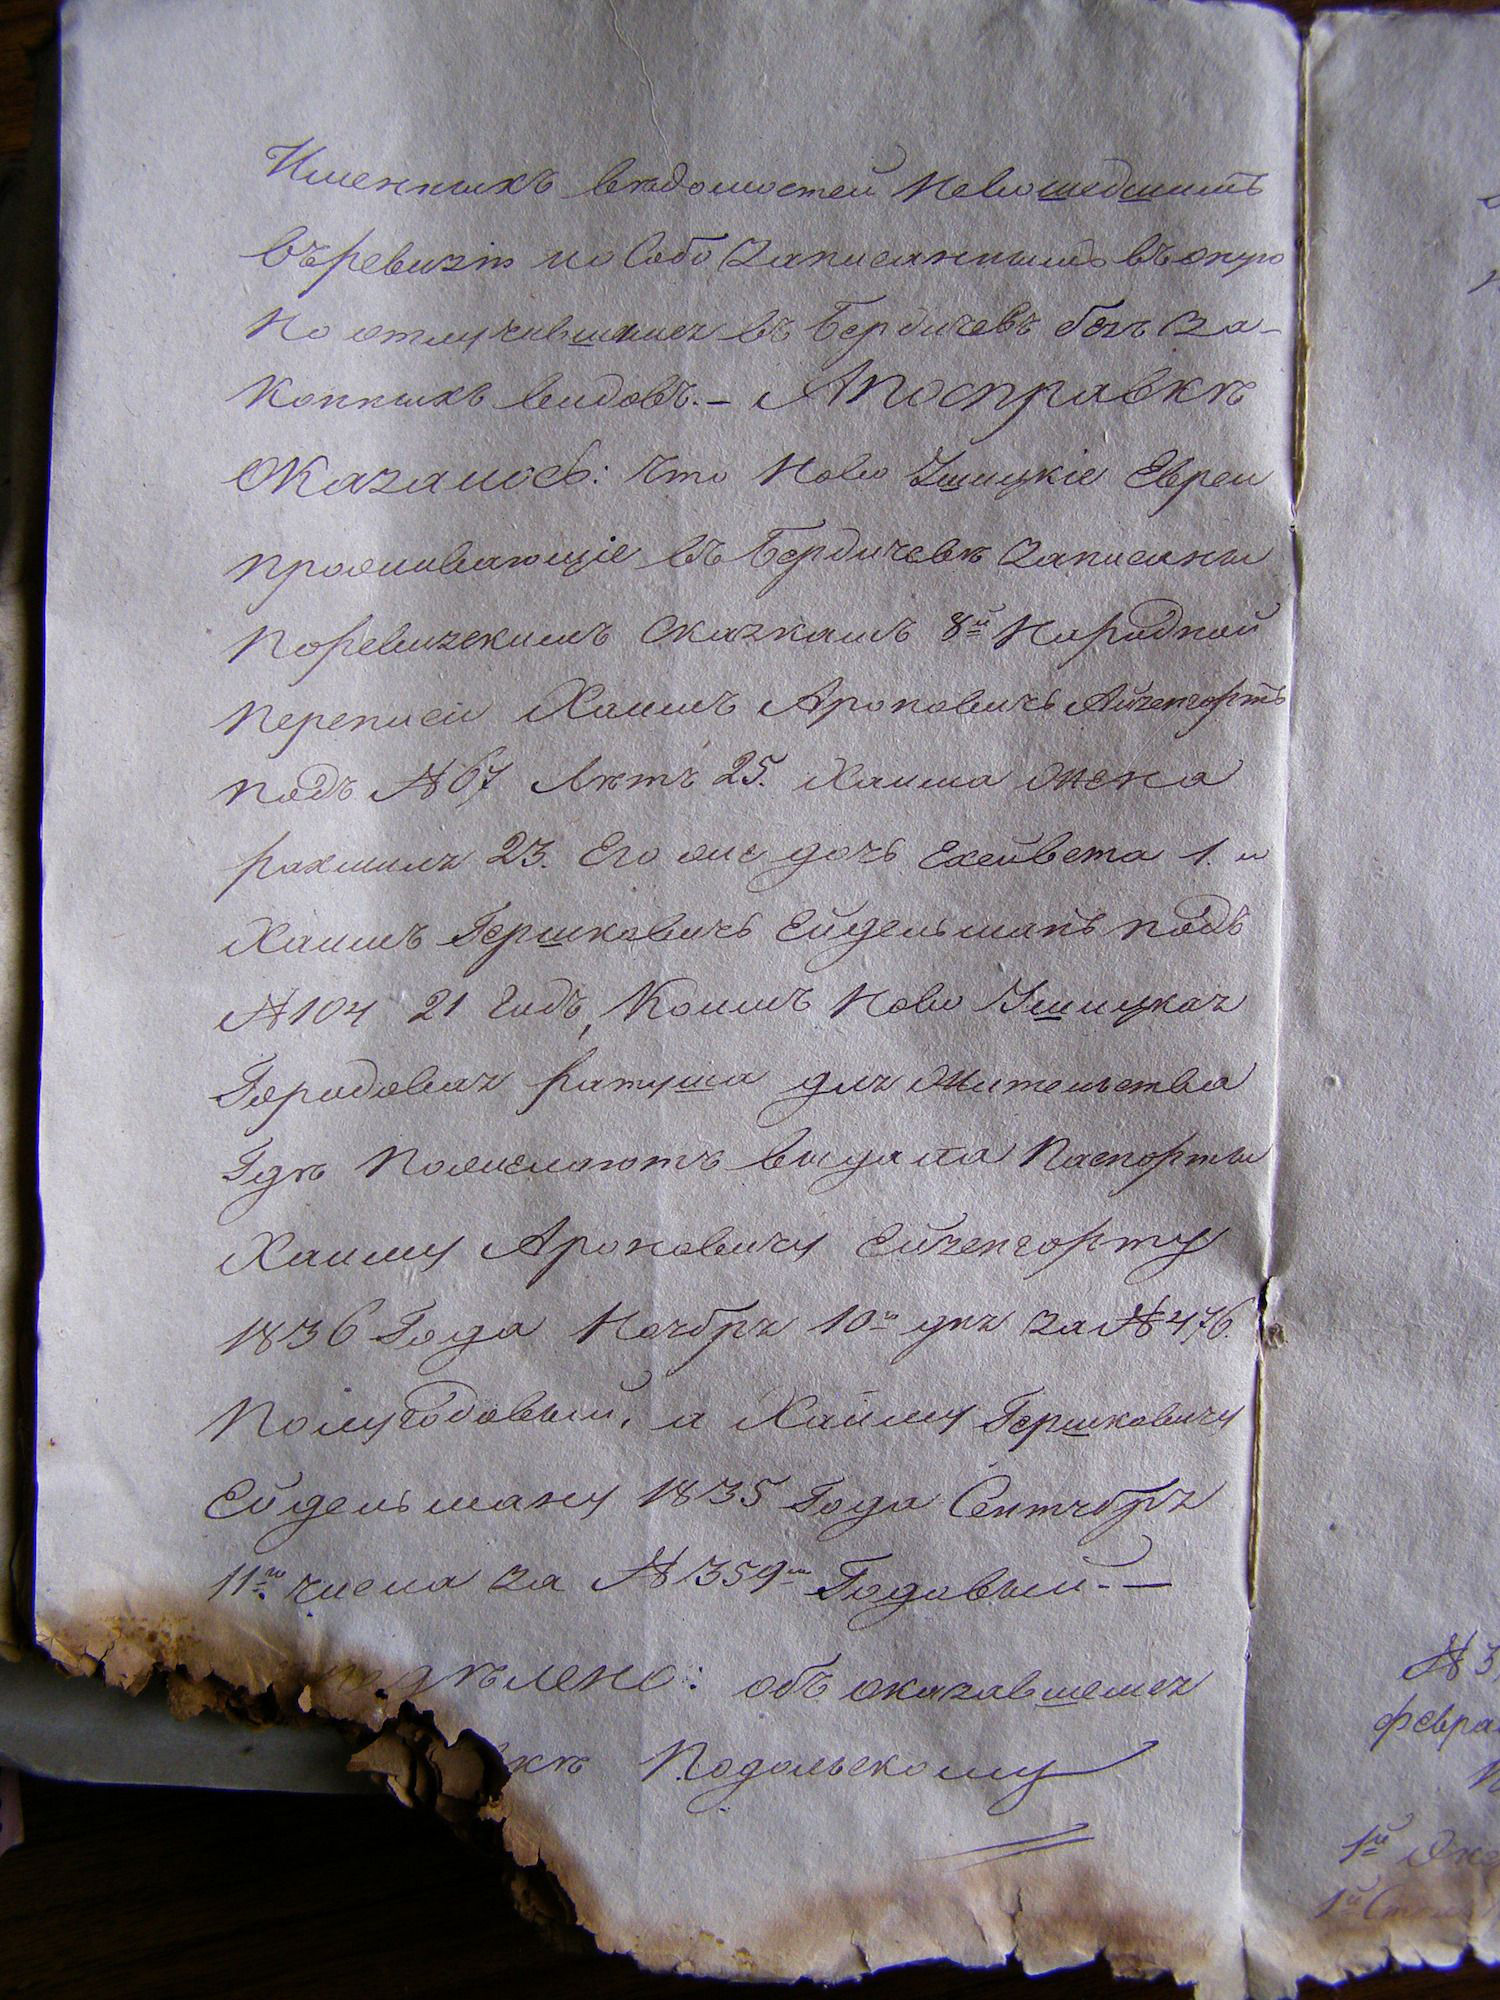 Именныхъ вѣдомостей невошедшимъ
въ ревизію и особо записаннымъ въ оную
но отлучившимся въ Бердичевъ безъ за-
конныхъ видовъ. — А по справкѣ
оказалось: что Ново Ушицкіе Евреи
проживающіе въ Бердичевѣ записаны
по ревизскимъ сказкамъ 8й народной
переписи Хаимъ Ароновичъ Айзенгортъ
подъ № 67 лѣтъ 25. Хаима жена
рахмиля 23. Его же дочь Ехейвета 1. и
Хаимъ Гершковичъ Ейдельманъ подъ
№ 104 21 годъ, коимъ Ново Ушицкая
Городовая ратуша для жительства
гдѣ пожелаютъ выдала паспорты
Хаиму Ароновичу Ейзенгорту
1836 Года Ноября 10го дня за № 476.
полугодовый, а Хаиму Гершковичу
Ейдельману 1835 Года Сентября
11го числа за № 359м Годовый. —
дѣлено: объ оказавшемся
кѣ Подольскому
№ 3
февра
1й
1й